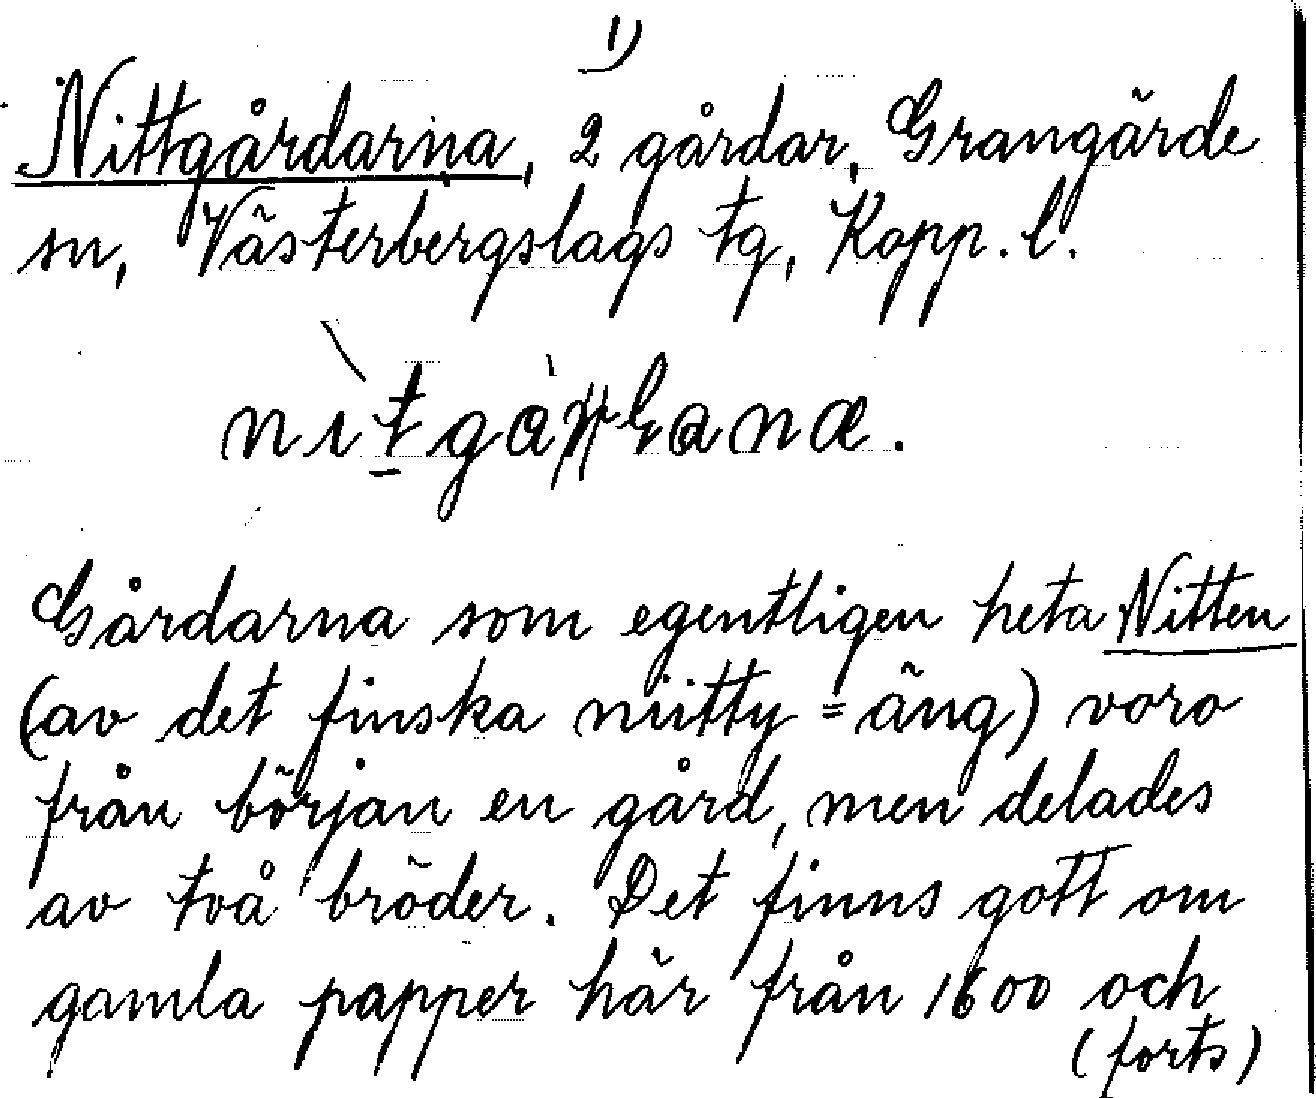 1)
Nittgårdarna, 2 gårdar, Grangärde
sn, Västerbergslags tg, Kopp. l.
Gårdarna som egentligen heta Nitten
(av det finska niitty = äng) voro
från början en gård, men delades
av två bröder. Det finns gott om
gamla papper här från 1600 och
(forts)